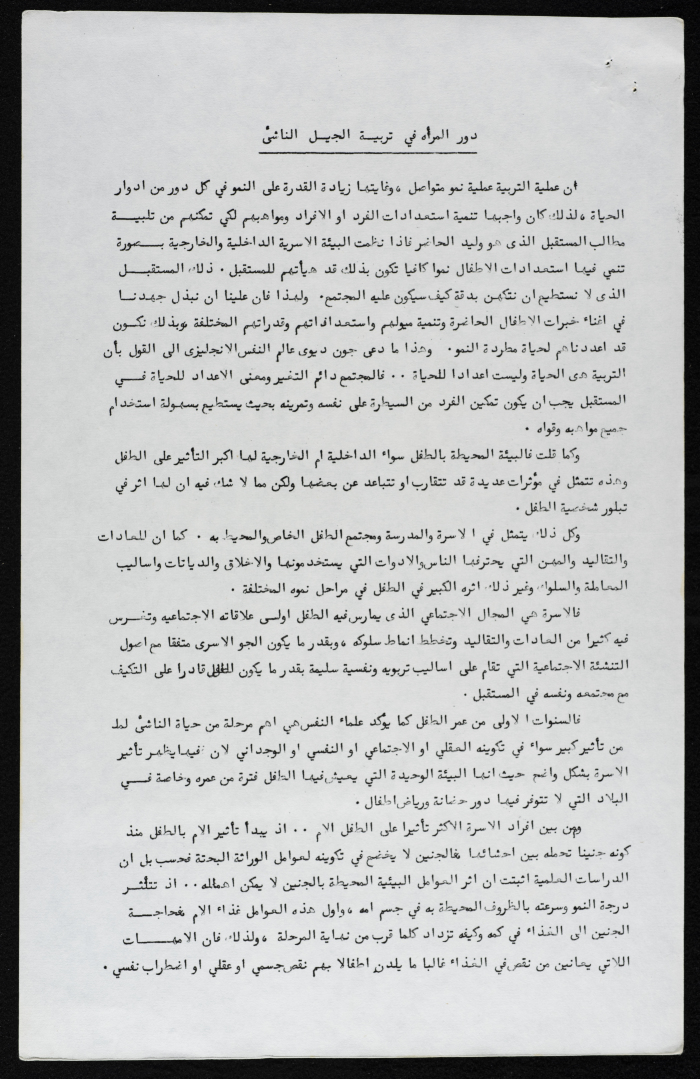 دور المرأه في تربيــة الجيــل الناشئ
ان عملية التربية عملية نمو متواصل ،وغايتها زيادة القدرة على النمو في كل دور من ادوار
الحياة ،لذلك كان واجبها تنمية استعدادات الفرد او الافراد ومواهبهم لكي تمكنهم من تلبيــة
مطالب المستقبل الذى هو وليد الحاضر فاذا نظمت البيئة الاسرية الداخلية والخارجية بــصورة
تنمي فيها استعدادات الاطفال نموا كافيا تكون بذلك قد هيأتهم للمستقبل . ذلك المستقبــل
الذى لا نستطيع ان نتكهن بدقة كيف سيكون عليه المجتمع. ولهذا فان علينا ان نبذل جهدنــا
في اغناء خبرات الاطفال الحاضرة وتنمية ميولهم واستعداداتهم وقدراتهم المختلفة ،وبذلك نكــون
قد اعددناهم لحياة مطردة النمو. وهذا ما دعى جون ديوى عالم النفس الانجليزى الى القول بأن
التربية هى الحياة وليست اعدادا للحياة .. فالمجتمع دائم التغير ومعنى الاعداد للحياة فــي
المستقبل يجب ان يكون تمكين الفرد من السيطرة على نفسه وتمرينه بحيث يستطيع بسهولة استخدام
جميع مواهبه وقواه .
وكما قلت فالبيئة المحيطة بالطفل سواء الداخلية ام الخارجية لها اكبر التأثير على الطفل
وهذه تتمثل في مؤثرات عديدة قد تتقارب او تتباعد عن بعضها ولكن مما لا شك فيه ان لها اثر في
تبلور شخصية الطفل .
وكل ذلك يتمثل في الاسرة والمدرسة ومجتمع الطفل الخاص والمحيط به . كما ان للعادات
والتقاليد والمهن التي يحترفها الناس والادوات التي يستخدمونها والاخلاق والديانات واساليب
المعاملة والسلوك وغير ذلك اثره الكبير في الطفل في مراحل نموه المختلفة .
فالاسرة هي المجال الاجتماعي الذى يمارس فيه الطفل اولسى علاقاته الاجتماعيه وتغــرس
فيه كثيرا من العادات والتقاليد وتخطط انماط سلوكه ،وبقدر ما يكون الجو الاسرى متفقا مع اصول
التنشئة الاجتماعية التي تقام على اساليب تربويه ونفسية سليمة بقدر ما يكون الطفل قادرا على التكيف
مع مجتمعه ونفسه في المستقبل .
فالسنوات الاولى من عمر الطفل كما يؤكد علماء النفس هي اهم مرحلة من حياة الناشئ لما
من تأثير كبير سواء في تكوينه العقلي او الاجتماعي او النفسي او الوجداني لان فيها يظهر تأثير
الاسرة بشكل واضح حيث انها البيئة الوحيدة التي يعيش فيها الطفل فترة من عمره وخاصة فــي
البلاد التي لا تتوفر فيها دور حضانة ورياض اطفال .
ومن بين افراد الاسرة الاكثر تأثيرا على الطفل الام .. اذ يبدأ تأثير الام بالطفل منذ
كونه جنينا تحمله بين احشائها فالجنين لا يخضع في تكوينه لعوامل الوراثة البحتة فحسب بل ان
الدراسات العلمية اثبتت ان اثر العوامل البيئية المحيطة بالجنين لا يمكن اهماله.. اذ تتأثــر
درجة النمو وسرعته بالظروف المحيطة به في جسم امه ،واول هذه العوامل غذاء الام فحاجــة
الجنين الى الغذاء في كمه وكيفه تزداد كلما قرب من نهاية المرحلة ،ولذلك فان الامهــات
اللاتي يعانين من نقص في الغذاء غالبا ما يلدن اطفالا بهم نقص جسمي او عقلي او اضطراب نفسي .